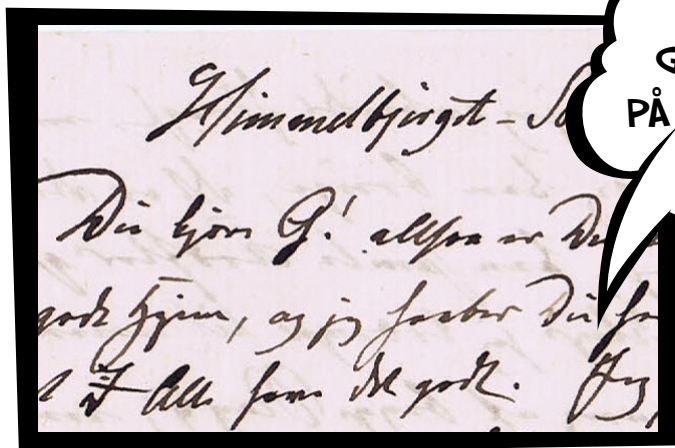 Himmelbjerget -
G
PÅ
Du kjære G! altsaa er Du
godt hjem, og jeg haaber Du
I Alle have det godt. Jeg